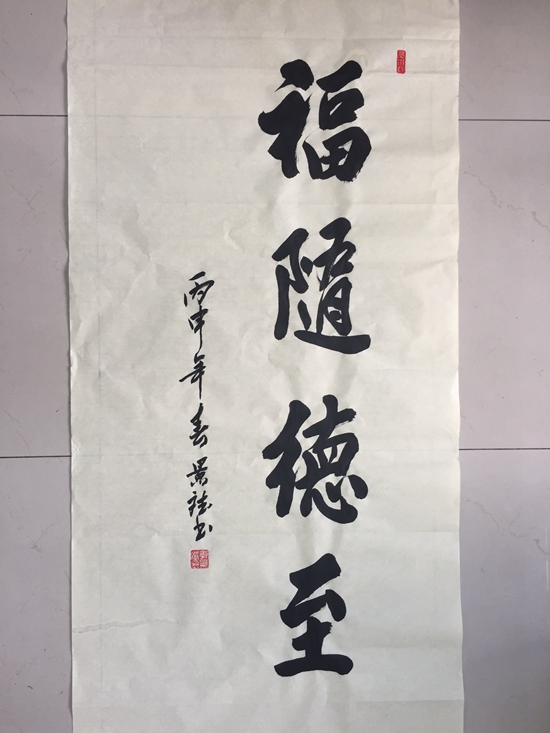 福隨德至
丙申年春景